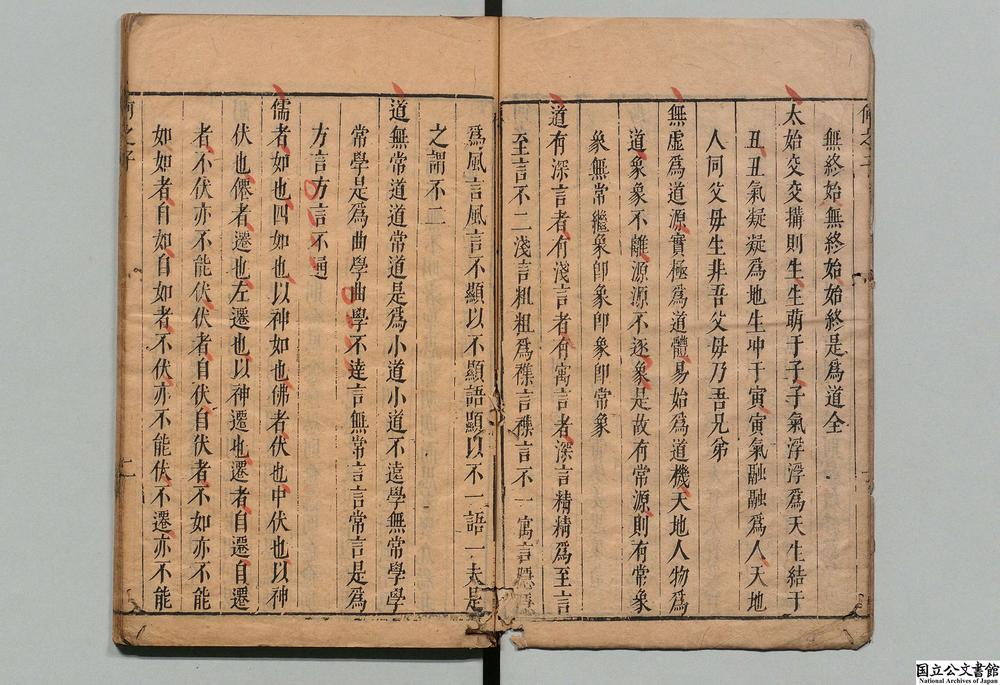 無終始無終始始終是爲道全
太始交交搆則生生萌于子子氣浮浮爲天生結于
丑丑氣凝凝爲地生冲于寅寅氣融融爲人天地
人同父母生非吾父母乃吾兄弟
無虛爲道源實極爲道體易始爲道機天地人物爲
道象象不離源源不逐象是故有常源則有常象
象無常繼象卽象卽象卽常象
道有深言者有淺言者有寓言者深言精精爲至言
至言不二淺言粗粗爲襍言襍言不一寓言隱
爲風言風言不顯以不顯語顯以不一語一夫是
之謂不二
道無常道道常道是爲小道小道不遠學無常學學
常學是爲曲學曲學不達言無常言言常言是爲
方言方言不通
儒者如也四如也以神如也佛者伏也中伏也以神
伏也僊者遷也左遷也以神遷也遷者自遷自遷
者不伏亦不能伏伏者自伏自伏者不如亦不能
如如者自如自如者不伏亦不能伏不遷亦不能
何之子
二
国立公文書館
National Archives of Japan